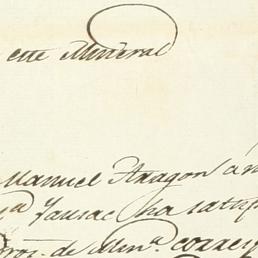 este Mineral
Manuel Aragon á
Yausac ha satisf
de Min.ª corresp